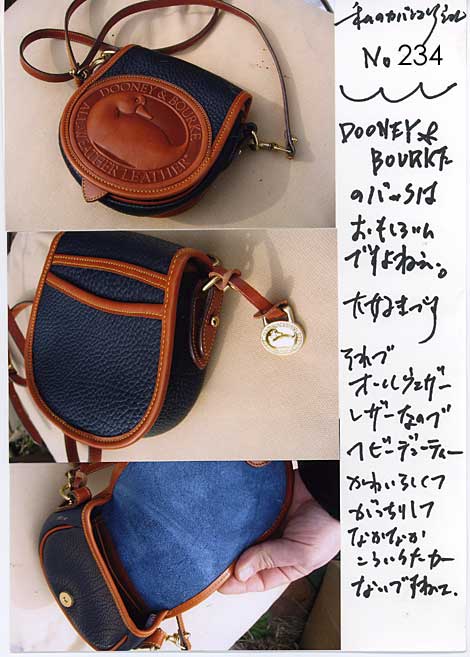 DOONEY & BOURKE
ALL WEATHER LEATHER
私のカバンコレクション
No 234
DOONEY &
BOURKEの
のバッグは
おもしろい
ですよねぇ。
それで
オールウェザー
レザーなので
ヘビーデューティー
かわいらしくて
がっちりして
なかなか
こういうカバン
ないですねぇ。